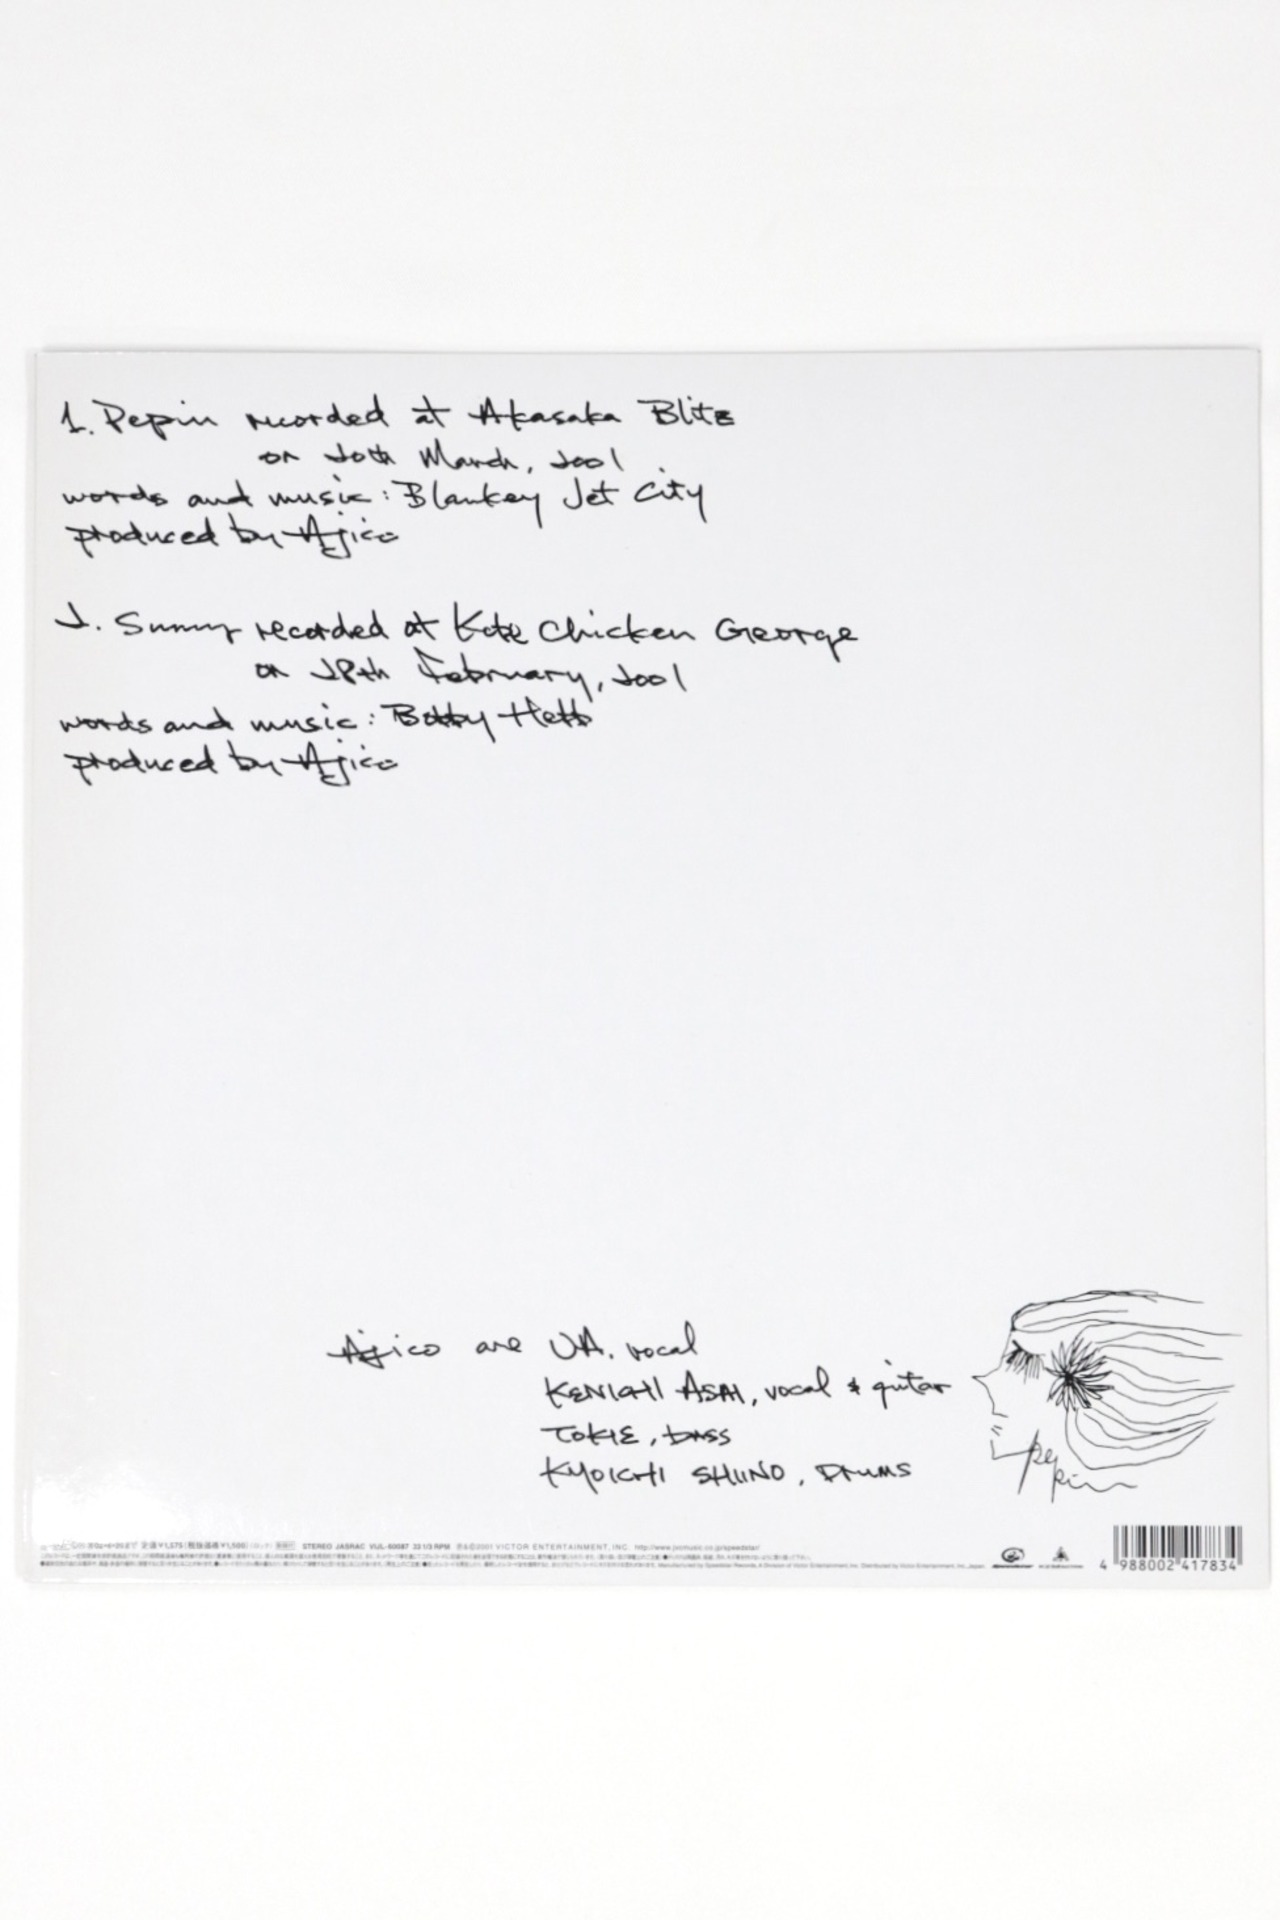 1. Pepin recorded at Akasaka Blitz
on 20th March, 2001
words and music: Blankey Jet City
produced by Ajico
2. Sunny recorded at Kobe Chicken George
on 28th February, 2001
words and music: Bobby Hebb
produced by Ajico
Ajico are UA, vocal
KENICHI ASAI, vocal & guitar
TOKIE, bass
KYOICHI SHIINO, Drums
pepin
定価¥1,575(税抜価格¥1,500) STEREO JASRAC VIJL-60087 33 1/3 RPM ℗&©2001 VICTOR ENTERTAINMENT, INC. http://www.jvcmusic.co.jp/speedstar/
4 988002 417834